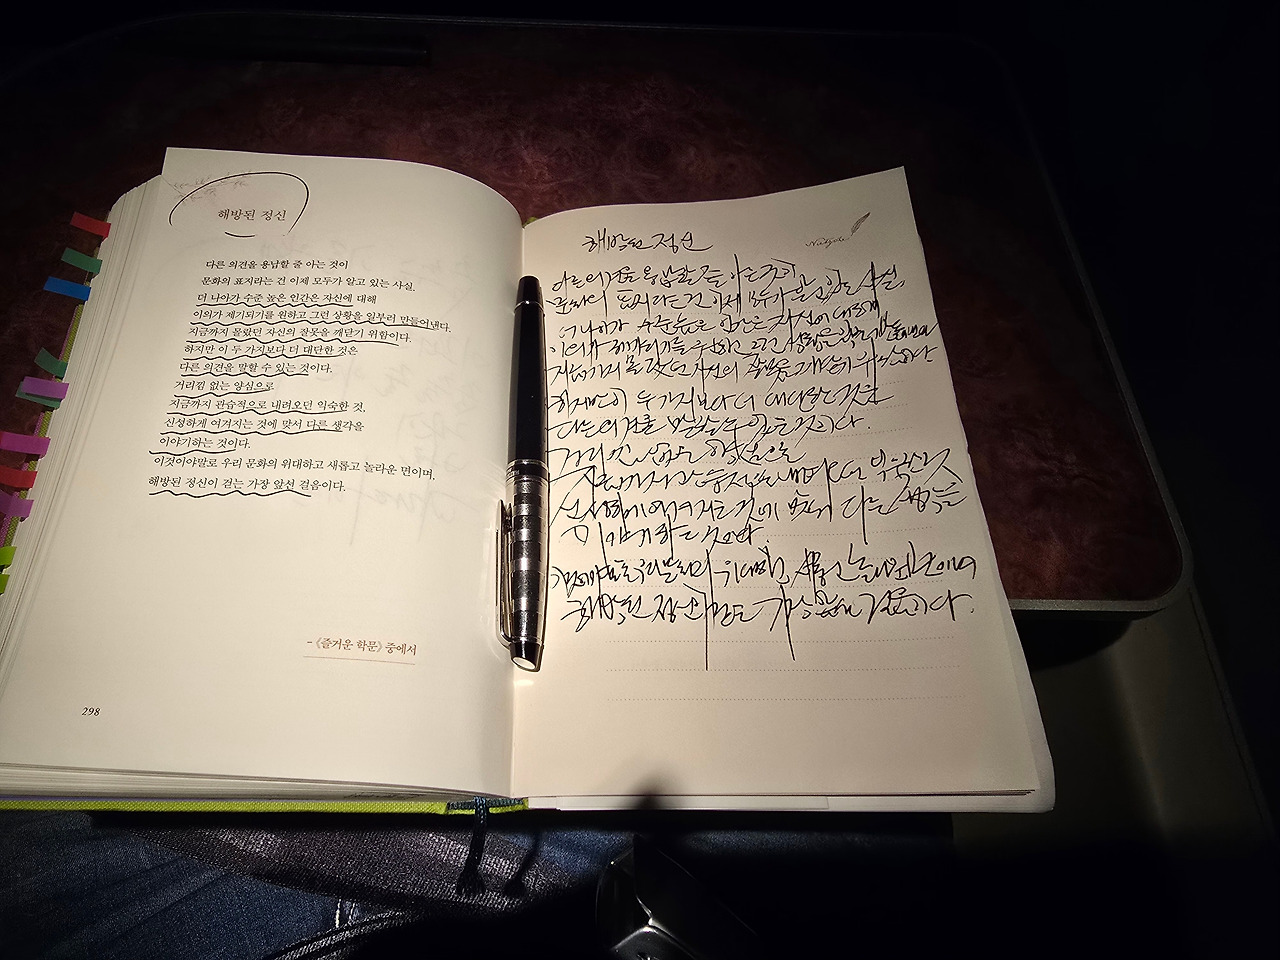 해방된 정신
다른 의견을 용납할 줄 아는 것이
문화의 표지라는 건 이제 모두가 알고 있는 사실.
더 나아가 수준 높은 인간은 자신에 대해
이의가 제기되기를 원하고 그런 상황을 일부러 만들어낸다.
지금까지 몰랐던 자신의 잘못을 깨닫기 위함이다.
하지만 이 두 가지보다 더 대단한 것은
다른 의견을 말할 수 있는 것이다.
거리낌 없는 양심으로
지금까지 관습적으로 내려오던 익숙한 것,
신성하게 여겨지는 것에 맞서 다른 생각을
이야기하는 것이다.
이것이야말로 우리 문화의 위대하고 새롭고 놀라운 면이며,
해방된 정신이 걷는 가장 앞선 걸음이다.
- 《즐거운 학문》 중에서
298
Nietzsche
해방된 정신
다른 의견을 용납할 줄 아는 것이
문화의 표지라는 건 이제 모두가 알고 있는 사실.
더 나아가 수준 높은 인간은 자신에 대해
이의가 제기되기를 원하고 그런 상황을 일부러
지금까지 몰랐던 자신의 잘못을 깨닫기
하지만 이 두 가지보다 더 대단한 것은
다른 의견을 말할 수 있는 것이다.
거리낌 없는 양심으로
지금까지 관습적으로 내려오던 익숙한 것
신성하게 여겨지는 것에 맞서 다른 생각을
이야기하는 것이다.
위대하고 새롭고 놀라운 면이며
해방된 정신이 걷는 가장 앞선 걸음이다.